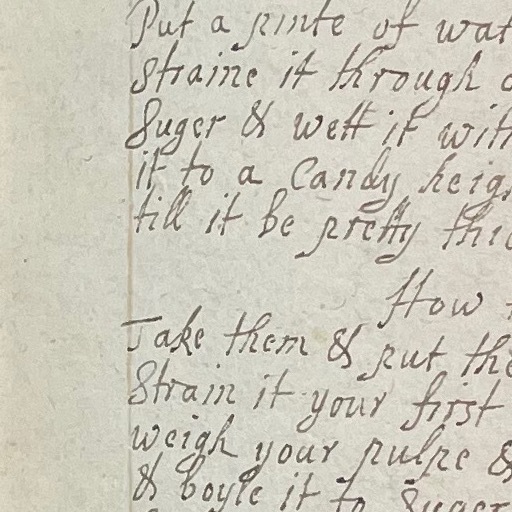 Put a pinte of wat
straine it through
Suger & wett it with
it to a Candy heig
till it be pretty thic
How
Take them & put the
Strain it your first
weigh your pulpe &
& boyle it to Suger